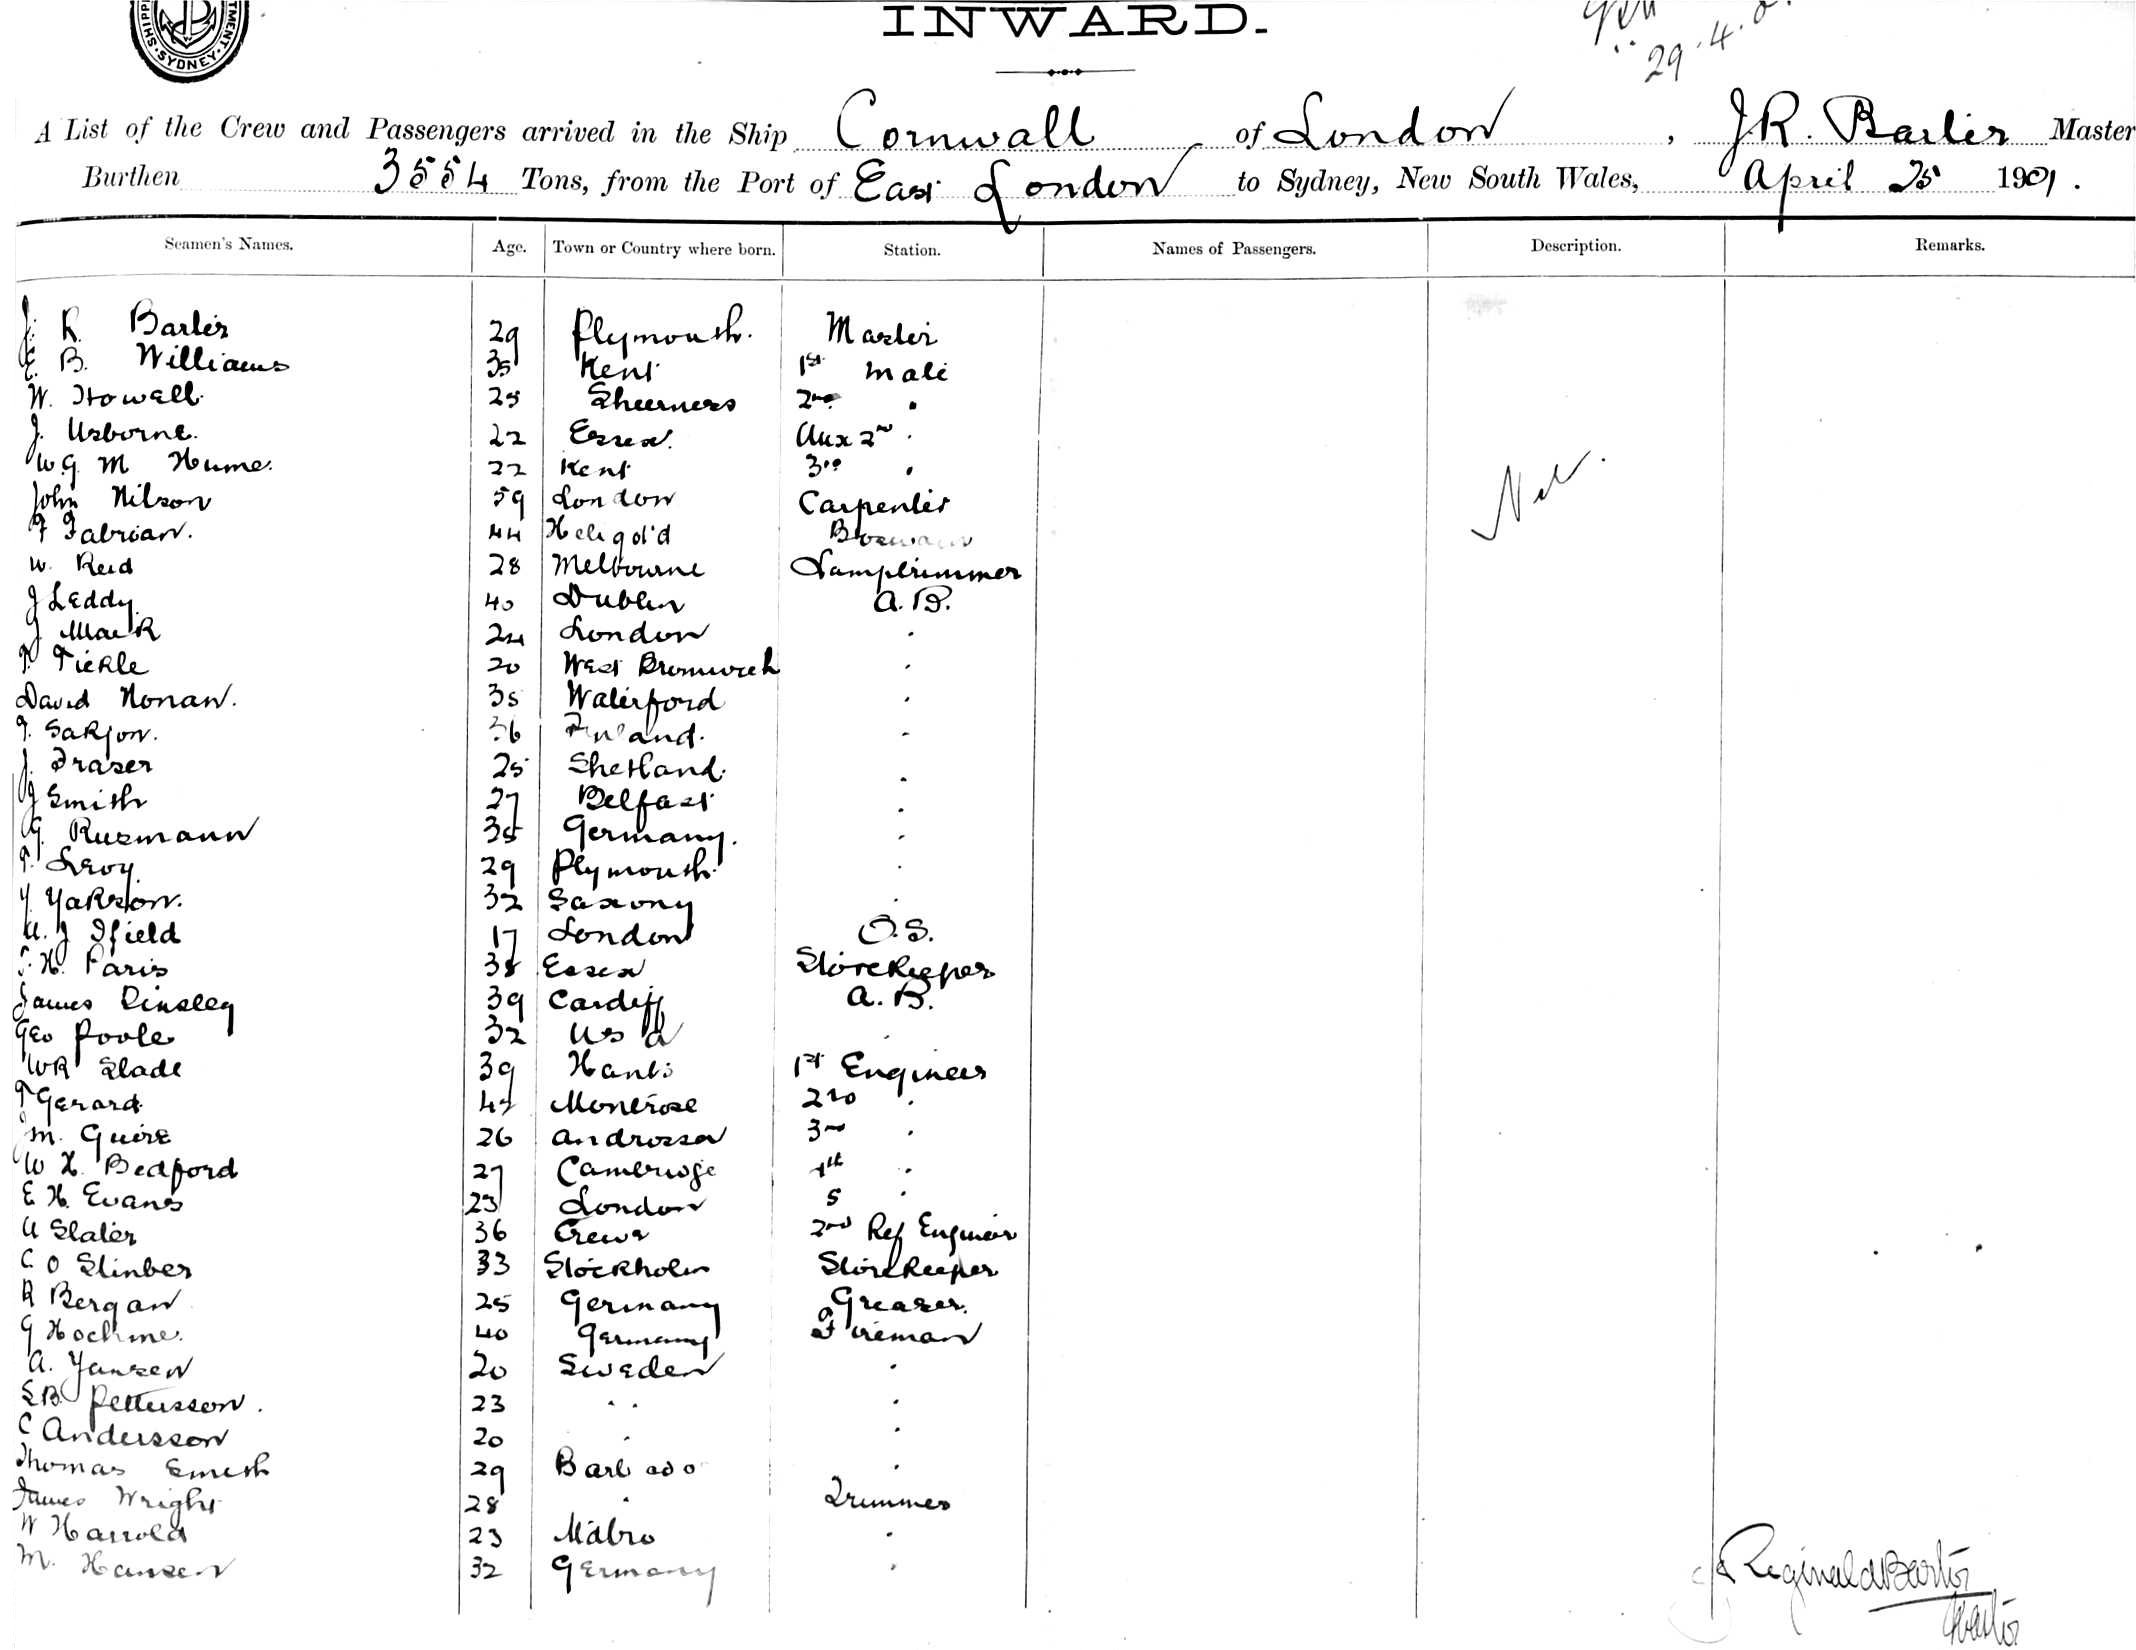 SHIPP TMENT. SYDNEY.
INWARD.
29.4.0
A List of the Crew and Passengers arrived in the Ship Cornwall of London, J.R. Barter Master
Burthen 3554 Tons, from the Port of East London to Sydney, New South Wales, April 25 1901.
Seamen's Names. Age. Town or Country where born. Station. Names of Passengers. Description. Remarks.
J. R. Barter 29 Plymouth. Master
E. B. Williams 35 Kent 1st Mate
W. Howell 25 Sheerness 2nd "
J. Usborne. 22 Essex. Aux 2nd "
W.G. M Hume. 22 Kent 3rd "
John Nilson 59 London Carpenter
F Fabrian. 44 Heligol'd Bosmain
W. Reid 28 Melbourne Lamptrimmer
J Leddy. 40 Dublin A.B.
J Mack 24 London "
T. Tickle 20 West Bromwich "
David Nonan. 35 Waterford "
T. Sakjon. 36 Finland. "
J. Fraser 25 Shetland. "
J Smith 27 Belfast "
G. Rusmann 35 Germany. "
T. Levy. 29 Plymouth "
Y Yakson. 32 Saxony "
A. J Ifield 17 London O.S.
T. H. Paris 38 Essex Storekeeper
James Kinsley 39 Cardiff A.B.
Geo Poole 32 U S A "
WR Slade 39 Hants 1st Engineer
T Gerard 42 Montrose 2nd "
J M. Guire 26 Androssa 3rd "
W H. Bedford 27 Cambridge 4th "
E H. Evans 23 London 5 "
A Slater 36 Crewe 2nd Ref Engineer
C O Stinber 33 Stockholm Storekeeper
R Bergan 25 Germany Greaser.
G Hochme. 40 Germany Fireman
A. Jansen 20 Sweden "
E.B. Pettersson. 23 " "
C Andersson 20 " "
Thomas Smith 29 Barbado "
James Wright 28 " Trimmer
W Harrold 23 M'dbro "
M. Hansen 32 Germany "
Nil.
J Reginald Barter
Master